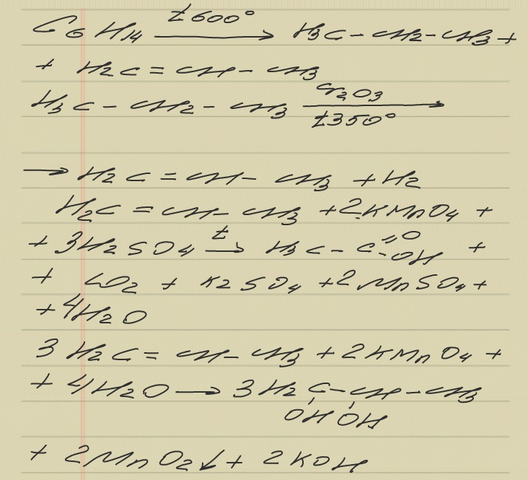 C6H14 t600° → H3C-CH2-CH3+
+ H2C=CH-CH3
H3C-CH2-CH3 Cr2O3 t350° →
→ H2C=CH-CH3 +H2
H2C=CH-CH3 +2KMnO4 +
+ 3H2SO4 t → H3C-C=O -OH +
+ CO2 + K2SO4 +2MnSO4+
+4H2O
3H2C=CH-CH3 +2KMnO4 +
+ 4H2O → 3H2C-CH-CH3
OH OH
+ 2MnO2↓+ 2KOH